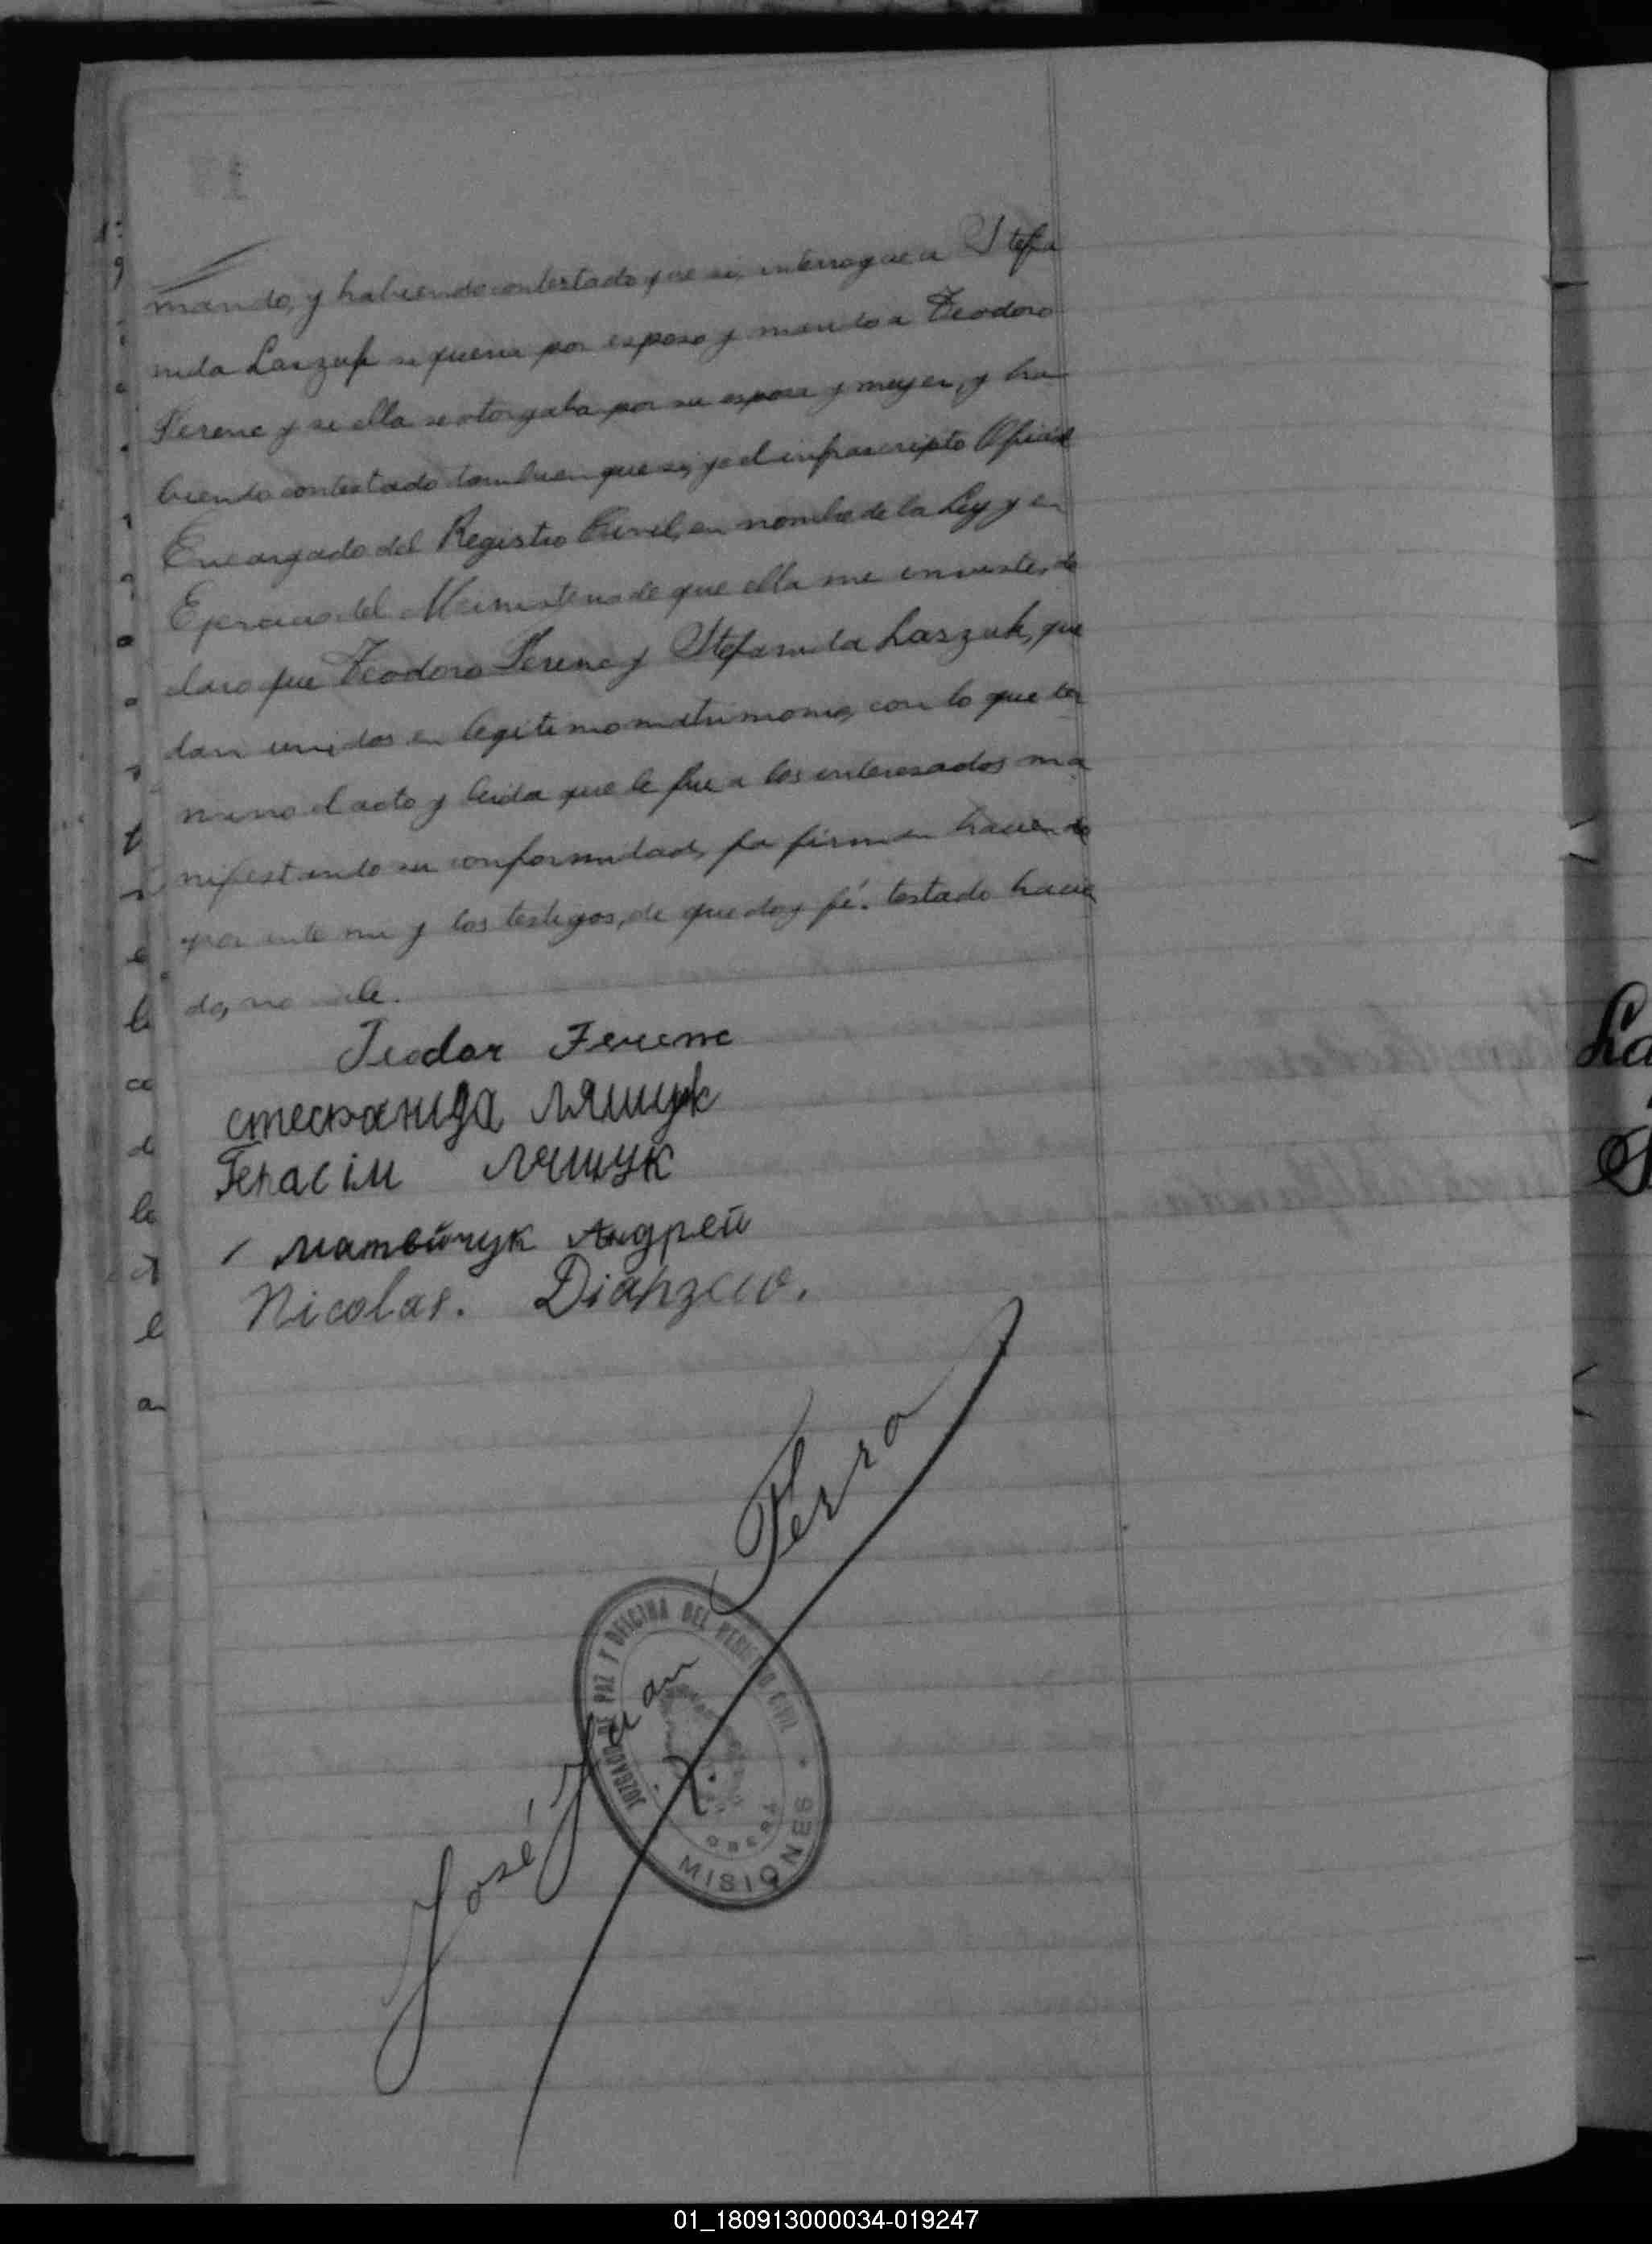 marido, y habiendo contestado que si, interrogue a Stefa
nida Laszuk si queria por esposo y marido a Teodoro
Ferenc y si ella se otorgaba por su esposa y mujer, y ha
biendo contestado tambien que si, yo el infrascripto Oficial
Encargado del Registro Civil, en nombre de la Ley y en
Ejercicio del Ministerio de que ella me inviste, de
claro que Teodoro Ferenc y Stefanida Laszuk, que
dan unidos en legitimo matrimonio, con lo que ter
mino el acto y leida que le fue a los interesados ma
nifestando su conformidad, la firman haciendo
por ante mi y los testigos, de que doy fé. testado hacien
do, no vale.
Teodor Ferenc
стефанида ляшук
Герасім Ляшук
матвійчук Андрей
Nicolas.
José Juan Ferro
JUZGADO DE PAZ Y OFICINA DEL REGISTRO CIVIL
OBERA
MISIONES
01_180913000034-019247